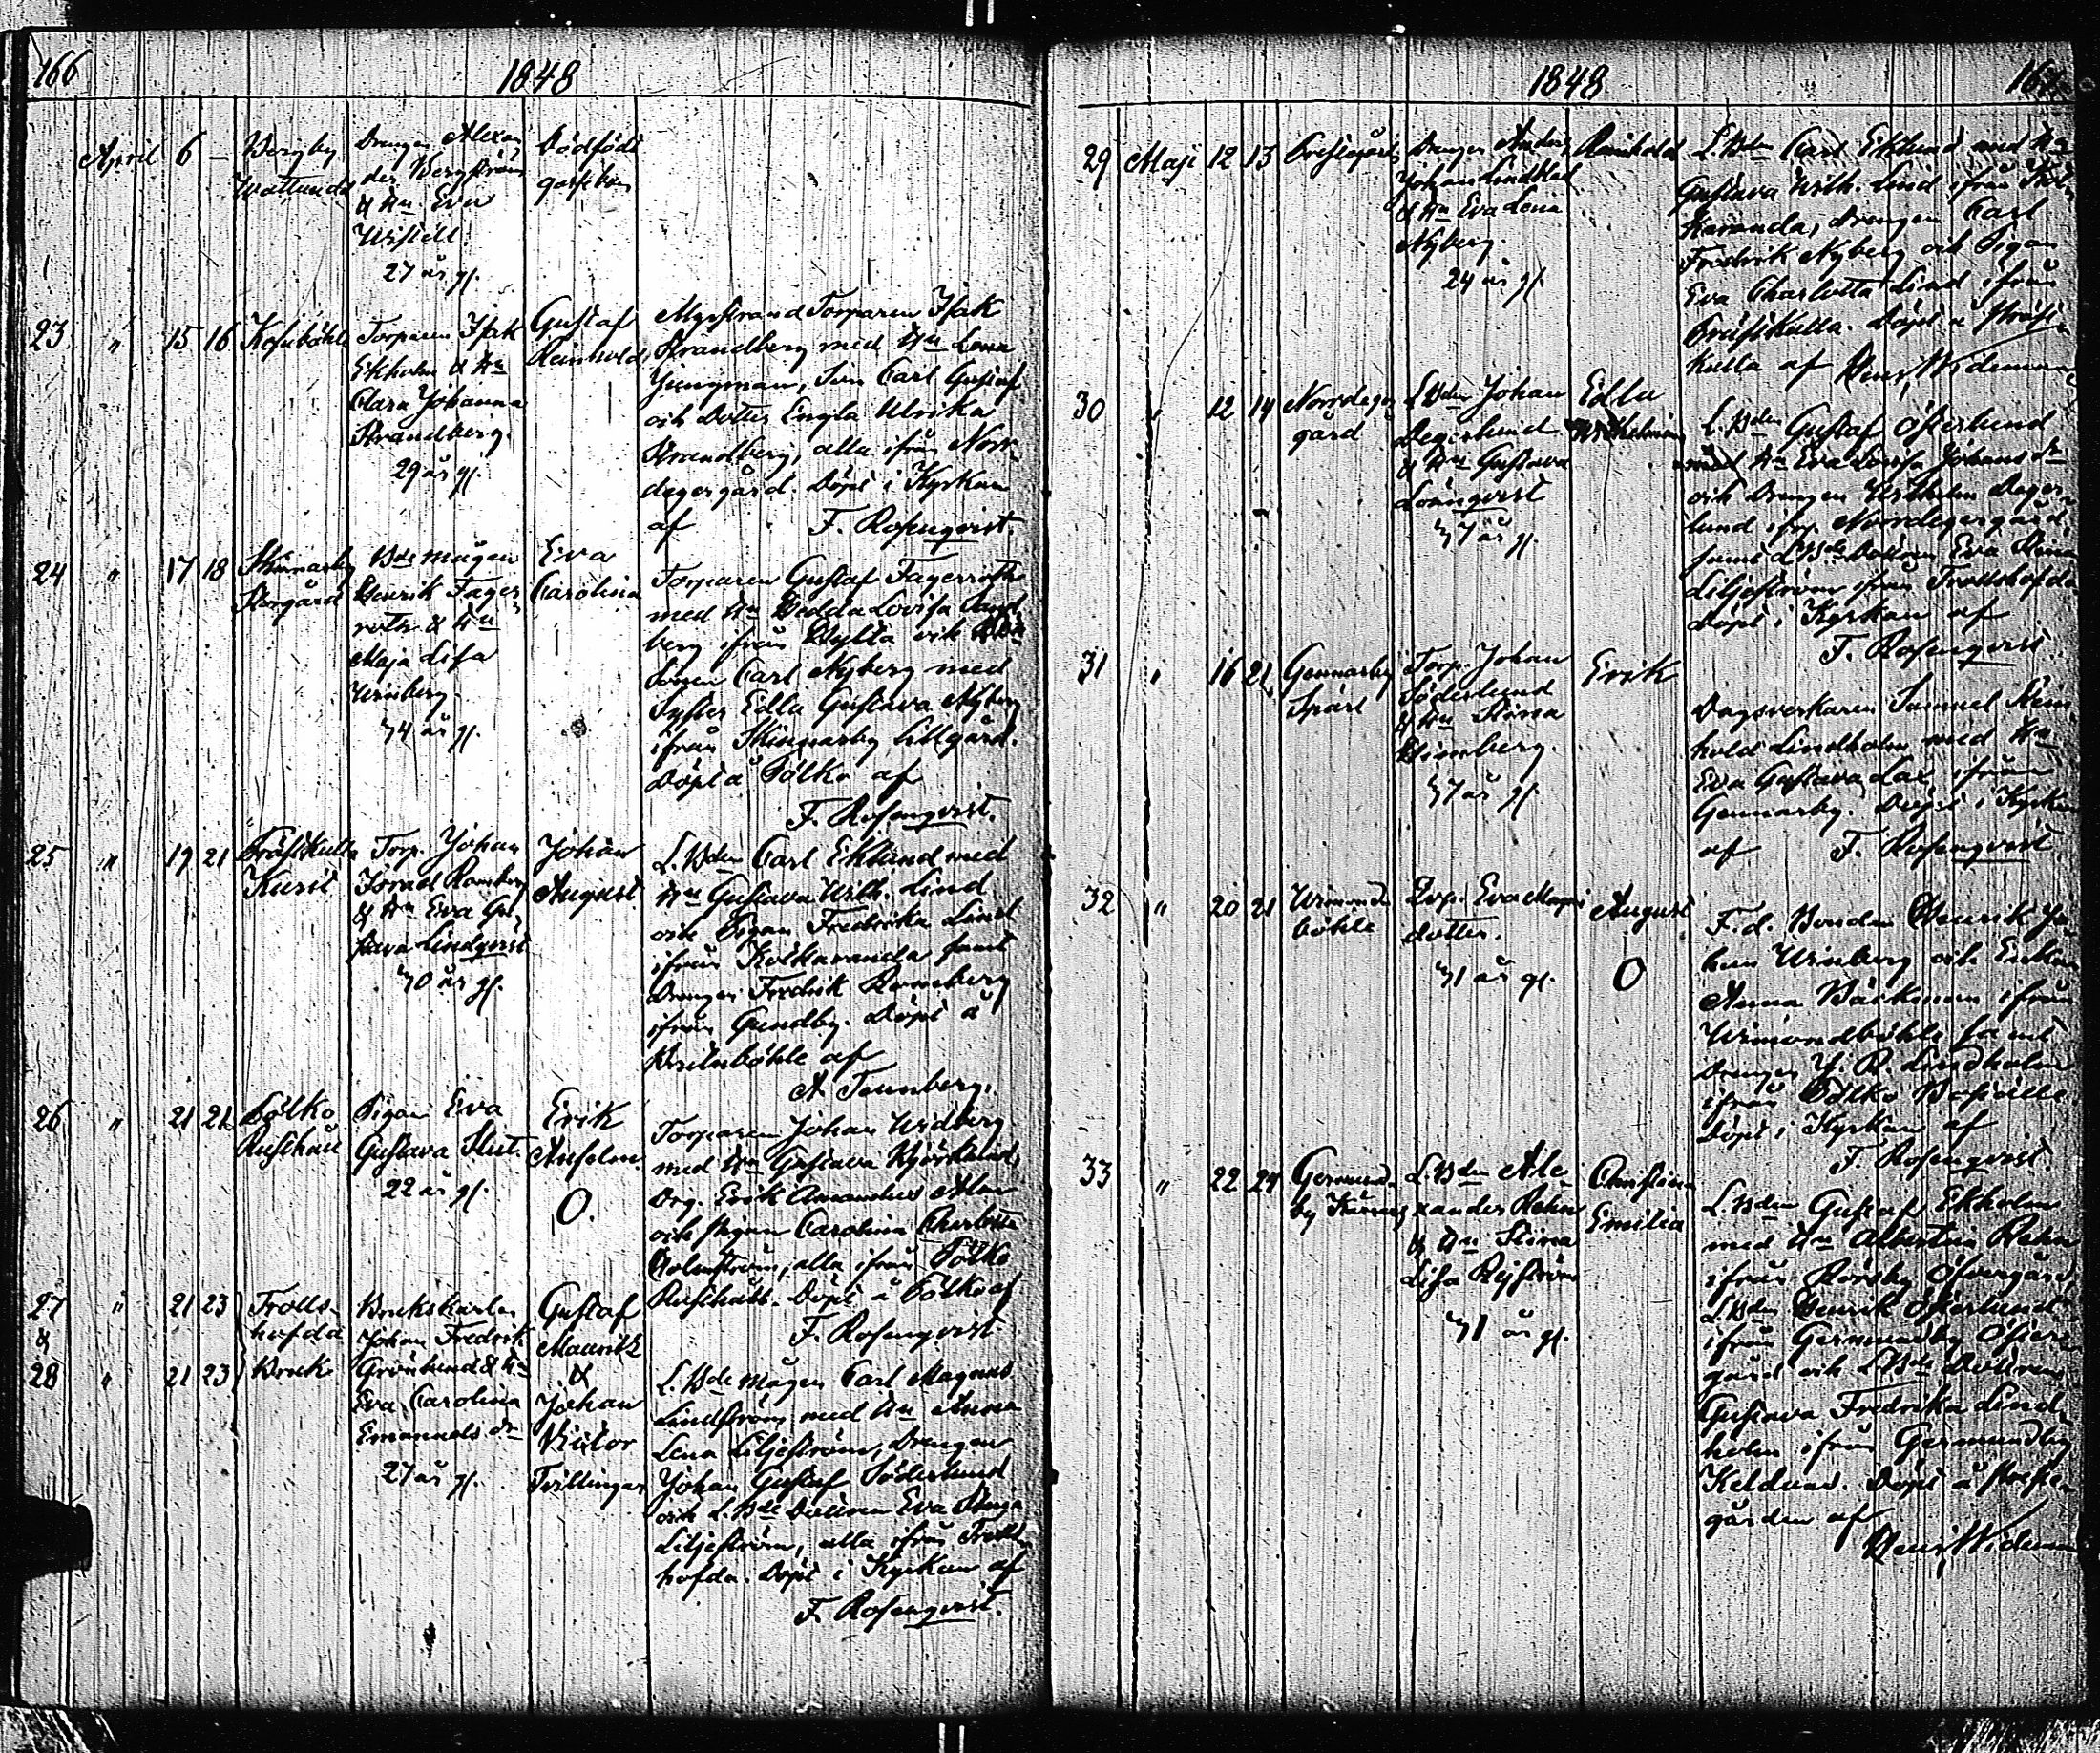 166
1848
April 6 — Bergby
Wattlunds
Drengen Alexan
der Bergström
& Hu Eva
Wistell.
27 år gl.
Dödfödt
gossebarn
23 " 15 16 Kosuböhle
Torparen Isak
Ekholm & Hu
Clara Johanna
Strandberg.
29 år gl.
Gustaf
Reinhold
Myrstrand Torparen Isak
Strandberg med Hu Lena
Jungman, Son Carl Gustaf
och Dotter Engla Ulrika
Strandberg, alla ifrån Norr-
degergård. Döpt i Kyrkan
af F. Rosenqvist.
24 " 17 18 Skinnarby
Storgård
Bde mågen
Henrik Fager
roth & Hu
Maja Lisa
Winberg.
74 år gl.
Eva
Carolina
Torparen Gustaf Fagerroth
med Hu Hedda Lovisa Sand
berg ifrån Hylta och Bde
Sonen Carl Nyberg med
Syster Edla Gustava Nyberg
ifrån Skinnarby Lillgård.
Döpt å Tölko af
F. Rosenqvist.
25 " 19 21 Präsikulla
Kurst
Torp. Johan
Ramberg
& Hu Eva Gu
stava Lindqvist
70 år gl.
Johan
August
L. Bden Carl Eklund med
Hu Gustava Wilh. Lind
och Pigan Fredrika Lind
ifrån Kolkaranda samt
Drengen Fredrik Ramberg
ifrån Gundby. Döpt å
af
A. Tennberg.
26 " 21 22 Tölko
Rusthåll
Pigan Eva
Gustava Slut.
22 år gl.
Erik
Anselm.
O.
Torparen Johan Widberg
med Hu Gustava Björklund,
Drg. Erik Amandus
och Pigan Carolina Charlotta
Holmström, alla ifrån Tölko
Rusthåll. Döpt å Tölko af
F. Rosenqvist
27 " 21 23 Trolls-
& hofda
28 " 21 23 Bruk.
Brukskarlen
Johan Fredrik
Grönlund & Hu
Eva Carolina
Emanuels dr
27 år gl.
Gustaf
Mauritz
&
Johan
Victor
Tvillingar
L. Bde mågen Carl Magnus
Lindström med Hu Anna
Lena Liljeström, Drengen
Johan Gustaf Söderlund
och L. Bde Dottren Eva
Liljeström, alla ifrån Trolls
hofda. Döpt i Kyrkan af
F. Rosenqvist.
1848
29 Maji 12 13 Prestegården
Drengen Anders
Johan Lindblad
& Hu Eva Lena
Nyberg.
24 år gl.
Reinhold
L. Bden Carl Eklund med Hu
Gustava Wilh. Lind ifrån Kol-
karanda, Drengen Carl
Fredrik Nyberg och Pigan
Eva Charlotta Lind ifrån
Präsikulla. Döpt å Präsi-
kulla af Henr. Wideman
30 " 12 14 Norrdeger
gård
L Bden Johan
Degerlund
& Hu Gustava
Lönnqvist
77 år gl.
Edla
Wilhelmina
L. Bden Gustaf Österlund
med Hu Eva Lovisa Johans dr
och Drengen Wilhelm Deger
lund ifr. Norrdegergård,
samt L. Bde Dottren Eva Stina
Liljeström ifrån Trollshofda
Döpt i Kyrkan af
F. Rosenqvist
31 " 16 21 Gennarby
Spars
Torp. Johan
Söderlund
& Hu Stina
77 år gl.
Erik
Dagsverkaren Samuel Rein
hold Lindholm med Hu
Eva Gustava Lax ifrån
Gennarby. Döpt i Kyrkan
af F. Rosenqvist
32 " 20 21 Wimonds
böhle
Eva
dotter.
71 år gl.
August
O
F. d. Bonden Henrik Jo
han Winberg och Enkan
Anna Bäckman ifrån
Wimondböhle samt
Drengen J. R. Lindholm
ifrån Tölko
Döpt i Kyrkan af
F. Rosenqvist.
33 " 22 24 Germund-
by
L. Bden Ale-
xander Rehn
& Hu Stina
Lisa Rejström
71 år gl.
Christina
Emilia
L. Bden Gustaf Ekholm
med Hu Albertina Rehn
ifrån Rörsby Öfvergård,
L. Bden Henrik Österlund
ifrån Germundby Öster
gård och L. Bde Dottren
Gustava Fredrika Lind
holm ifrån Germundby
Kelduns. Döpt å Preste-
gården af
Henr. Wideman